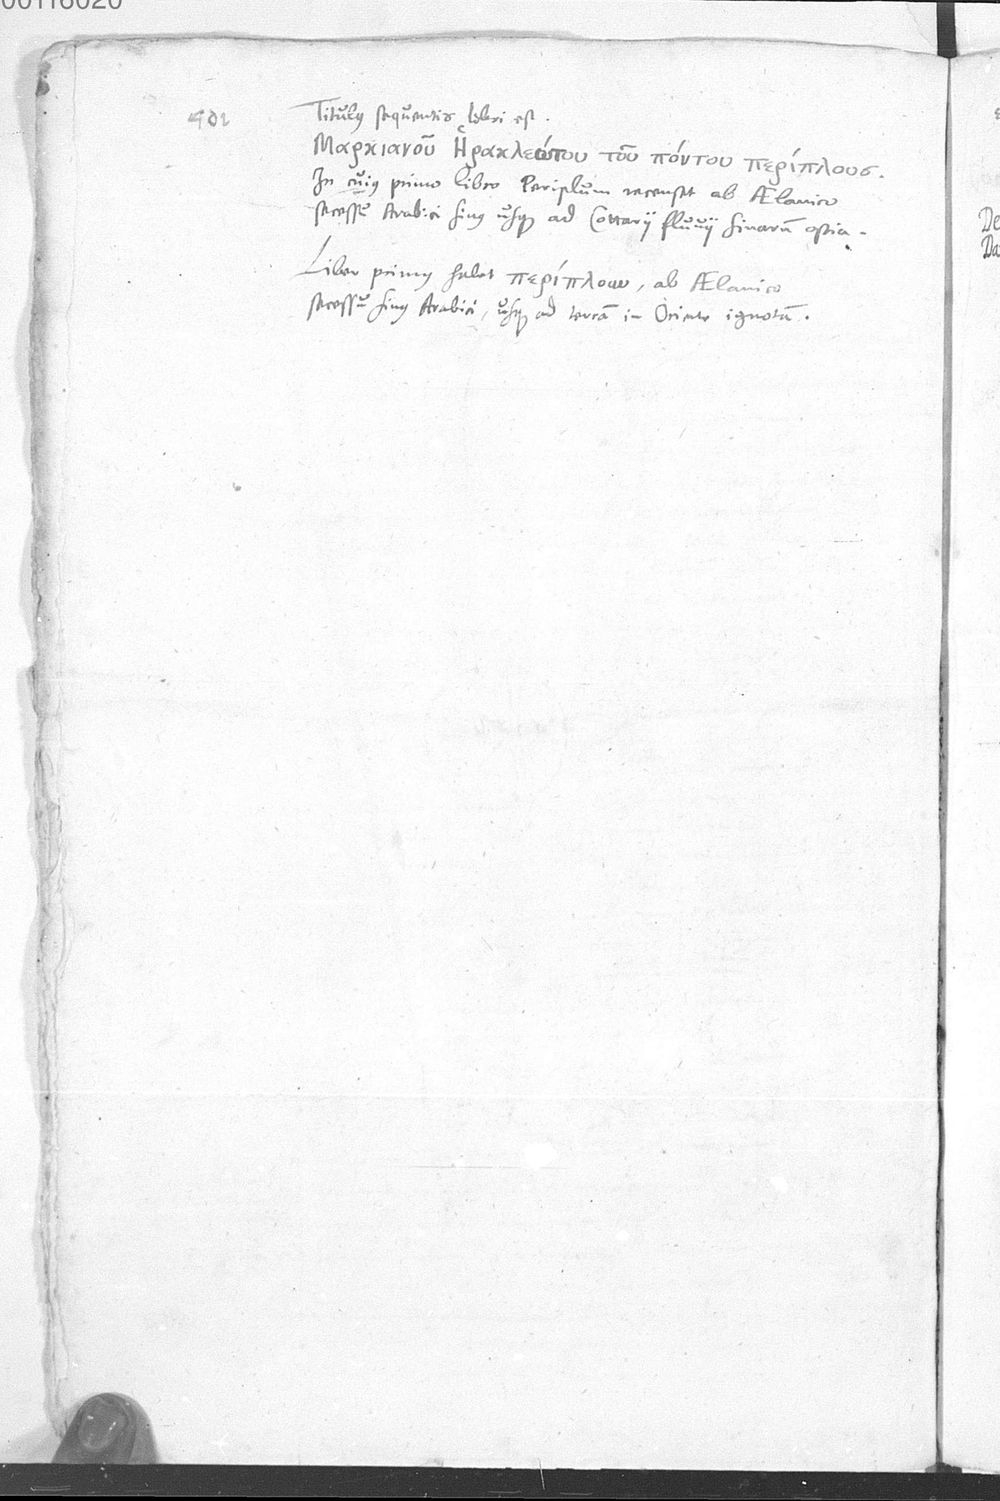 00116020
Titulus sequentis libri est.
Μαρκιανοῦ Ἡρακλεώτου τοῦ πόντου περίπλους.
In cuius primo libro Periplum recenset ab Ælanico
secessu Arabici sinus usque ad Cottarij fluuij sinarū ostia.
Liber primus habet περίπλουν, ab Ælanico
secessu sinus Arabici, usque ad terrā in Oriente ignotā.
De
Da